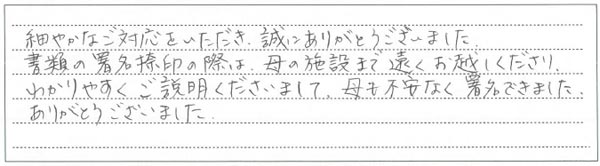 細やかなご対応をいただき、誠にありがとうございました。
書類の署名捺印の際は、母の施設まで遠くお越しくださり、
わかりやすくご説明くださいまして、母も不安なく署名できました。
ありがとうございました。